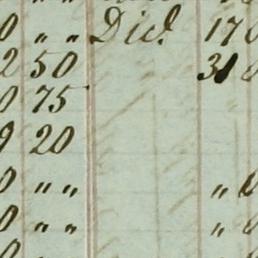 0 " " Died 170
2 50 310
0 75
9 20
0 " " " 0
0 " " " 0